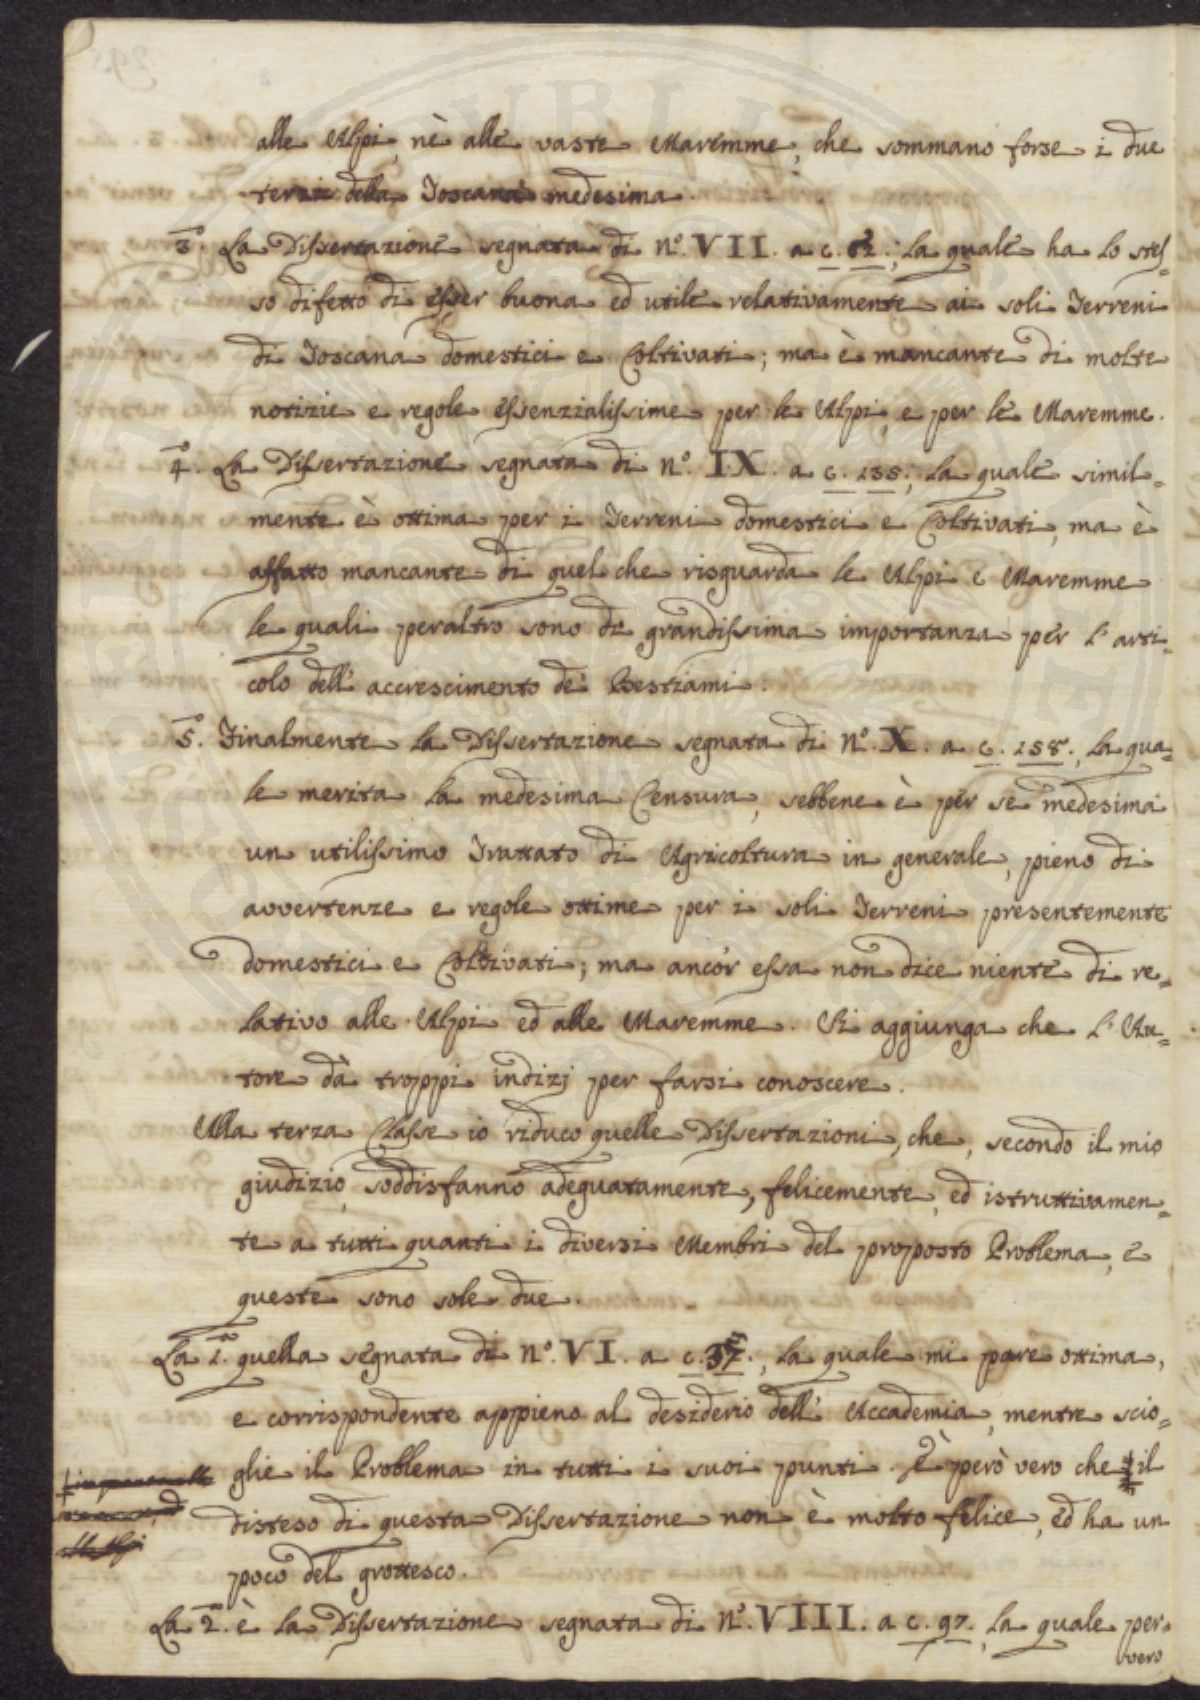 alle Alpi, nè alle vaste Maremme, che sommano forse i due
terzi della Toscana medesima.
3.° La Dissertazione segnata di N.° VII. a c. 62.; la quale ha lo stes-
so difetto di esser buona ed utile relativamente ai soli Terreni
di Toscana domestici e Coltivati; ma è mancante di molte
notizie e regole essenzialissime per le Alpi, e per le Maremme.
4.° La Dissertazione segnata di n.° IX. a c. 138.; la quale simil-
mente è ottima per i Terreni domestici e Coltivati, ma è
affatto mancante di quel che risguarda le Alpi e Maremme
le quali peraltro sono di grandissima importanza per l'arti-
colo dell'accrescimento de' Bestiami.
5.° Finalmente la Dissertazione segnata di N.° X. a c. 158., la qua-
le merita la medesima Censura, sebbene è per se medesima
un utilissimo Trattato di Agricoltura in generale, pieno di
avvertenze e regole ottime per i soli Terreni presentemente
domestici e Coltivati; ma ancor essa non dice niente di re-
lativo alle Alpi ed alle Maremme. Si aggiunga che l'Au-
tore dà troppi indizj per farsi conoscere.
Alla terza Classe io riduco quelle Dissertazioni, che, secondo il mio
giudizio, soddisfanno adeguatamente, felicemente, ed istruttivamen-
te a tutti quanti i diversi Membri del proposto Problema, e
queste sono sole due.
La 1.ª quella segnata di n.° VI. a c. 37., la quale mi pare ottima,
e corrispondente appieno al desiderio dell'Accademia, mentre scio-
glie il Problema in tutti i suoi punti. È però vero che il
disteso di questa Dissertazione non è molto felice, ed ha un
poco del grottesco.
La 2.ª è la Dissertazione segnata di N.° VIII. a c. 97., la quale per-
vero